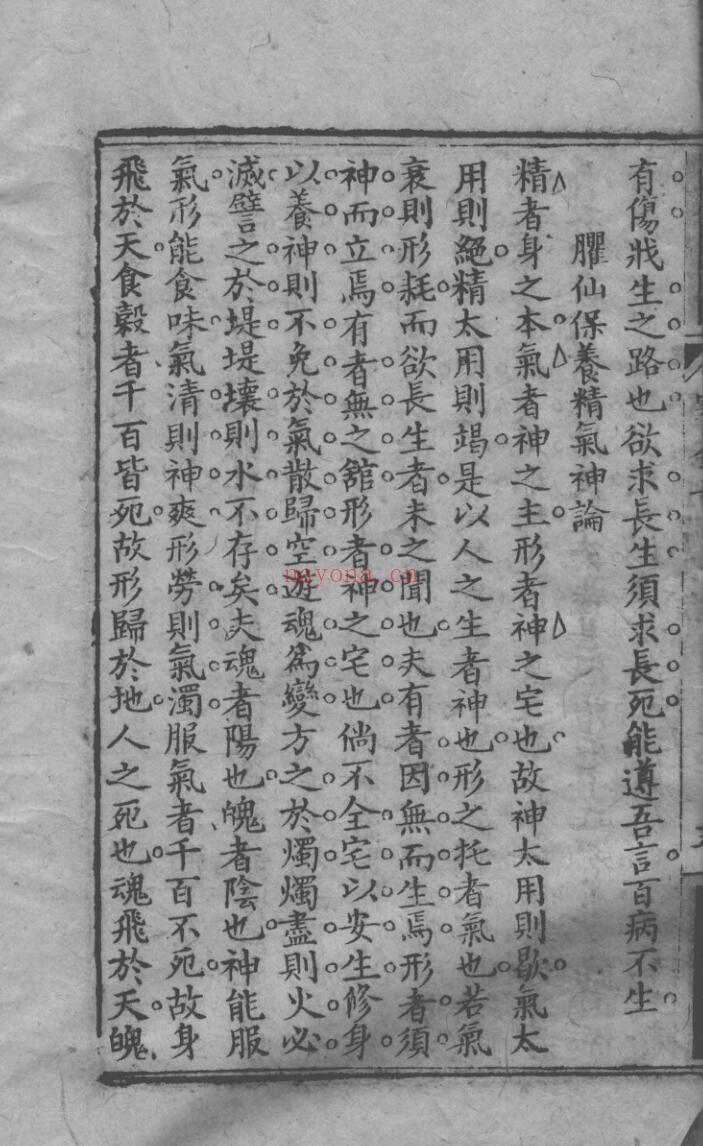 有傷戕生之路也欲求長生須求長死能遵吾言百病不生
臞仙保養精氣神論
精者身之本氣者神之主形者神之宅也故神太用則歇氣太
用則絕精太用則竭是以人之生者神也形之托者氣也若氣
衰則形耗而欲長生者未之聞也夫有者因無而生焉形者須
神而立焉有者無之舘形者神之宅也倘不全宅以安生修身
以養神則不免於氣散歸空遊魂爲變方之於燭燭盡則火必
滅譬之於堤堤壞則水不存矣夫魂者陽也魄者陰也神能服
氣形能食味氣清則神爽形勞則氣濁服氣者千百不死故身
飛於天食穀者千百皆死故形歸於地人之死也魂飛於天魄
nayona.cn